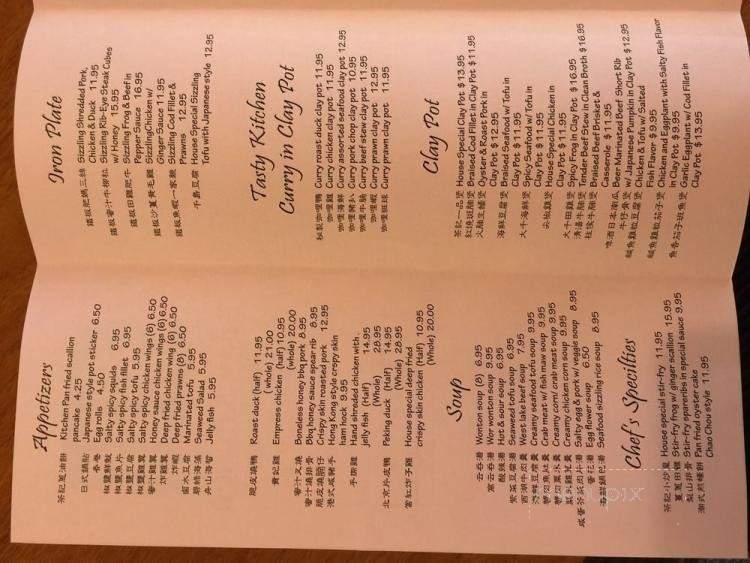 Appetizers
茶記蔥油餅 Kitchen Pan fried scallion
pancake 4.25
日式鍋貼 Japanese style pot sticker 6.50
春卷 Egg rolls 4.50
椒鹽鮮魷 Salty spicy squids 6.95
椒鹽魚片 Salty spicy fish fillet 6.95
椒鹽豆腐 Salty spicy tofu 5.95
椒鹽雞翼 Salty spicy chicken wings (6) 6.50
蜜汁雞翼 Honey sauce chicken wings (6) 6.50
炸雞翼 Deep fried chicken wings (6) 6.50
炸蝦 Deep Fried prawns (8) 6.50
鹵水豆腐 Marinated tofu 5.95
Seaweed Salad 5.95
舟山海蜇 Jelly fish 5.95
脆皮燒鴨 Roast duck (half) 11.95
(whole) 21.00
貴妃雞 Empress chicken (half) 10.95
(whole) 20.00
蜜汁叉燒 Boneless honey bbq pork 8.95
蜜汁燒排骨 Bbq honey sauce spear rib 8.95
脆皮燒腩仔 Crispy skin roasted pork 12.95
港式咸豬手 Hong Kong style crispy skin
ham hock 9.95
手撕雞 Hand shreded chicken with
jelly fish (Half) 14.95
(Whole) 28.95
北京片皮鴨 Peking duck (Half) 14.95
(Whole) 28.95
富缸炸子雞 House special deep fried
crispy skin chicken (Half) 10.95
(Whole) 20.00
Soup
雲吞湯 Wonton soup (8) 6.95
窩雲吞湯 Wor wonton soup 9.95
酸辣湯 Hot & sour soup 6.95
紫菜豆腐湯 Seaweed tofu soup 6.95
西湖牛肉羹 West lake beef soup 7.95
海鮮豆腐羹 Creamy seafood tofu soup 9.95
蟹肉魚肚羹 Crab meat w/ fish maw soup 9.95
蟹肉粟米羹 Creamy corn/ crab meat soup 9.95
粟米雞茸羹 Creamy chicken corn soup 9.95
咸蛋芥菜肉片湯 Salty egg & pork w/ veggie soup 8.95
蛋花湯 Egg flower soup 6.50
海鮮鍋巴湯 Seafood sizzling rice soup 8.95
Chef's Specilties
茶記小炒皇 House special stir-fry 11.95
薑蔥田雞 Stir-fry frog w/ ginger scallion 15.95
梨山排骨 Stir-fry spareribs in special sauce 9.95
潮式煎蠔餅 Pan fried oyster cake
Chao Chow style 11.95
Iron Plate
鐵板肥媽三絲 Sizzling Shredded Pork,
Chicken & Duck 11.95
鐵板蜜汁牛柳粒 Sizzling Rib-Eye Steak Cubes
w/ Honey 15.95
鐵板田雞肥牛 Sizzling Frog & Beef in
Pepper Sauce 16.95
鐵板沙薑黄毛雞 SizzlingChicken w/
Ginger Sauce 11.95
鐵板魚蝦一家親 Sizzling Cod Fillet &
Prawns 12.95
千島豆腐 House Special Sizzling
Tofu with Japanese style 12.95
Tasty Kitchen
Curry in Clay Pot
秘製咖喱鴨 Curry roast duck clay pot 11.95
咖喱雞 Curry chicken clay pot 11.95
咖喱海鮮 Curry assorted seafood clay pot 12.95
咖喱豬扒 Curry Pork chop clay pot 10.95
咖喱牛腩 Curry beef stew clay pot 11.95
咖喱蝦 Curry prawn clay pot 12.95
咖喱班球 Curry prawn clay pot 11.95
Clay Pot
茶記一品煲 House Special Clay Pot $ 13.95
紅燒斑腩煲 Braised Cod Fillet in Clay Pot $ 11.95
火腩生蠔煲 Oyster & Roast Pork in
Clay Pot $ 12.95
海鮮豆腐煲 Braised Seafood w/ Tofu in
Clay Pot $ 11.95
大千海鮮煲 Spicy Seafood w/ Tofu in
Clay Pot $ 11.95
尖椒雞煲 House Special Chicken in
Clay Pot $ 11.95
大千田雞煲 Spicy Frog in Clay Pot $ 16.95
清湯牛腩煲 Tender Beef Stew in Clean Broth $ 16.95
柱侯牛腩煲 Braised Beef Brisket &
Casserole $ 11.95
啤酒日本南瓜 Beer Marinated Beef Short Rib
牛仔骨煲 w/ Japanese Pumpkin in Clay Pot $ 12.95
鹹魚雞粒豆腐煲 Chicken & Tofu w/ Salted
Fish Flavor $ 9.95
鹹魚雞粒茄子煲 Chicken and Eggplant with Salty Fish Flavor
in Clay Pot $ 9.95
魚香茄子斑魚煲 Garlic Eggplant w/ Cod Fillet in
Clay Pot $ 13.95